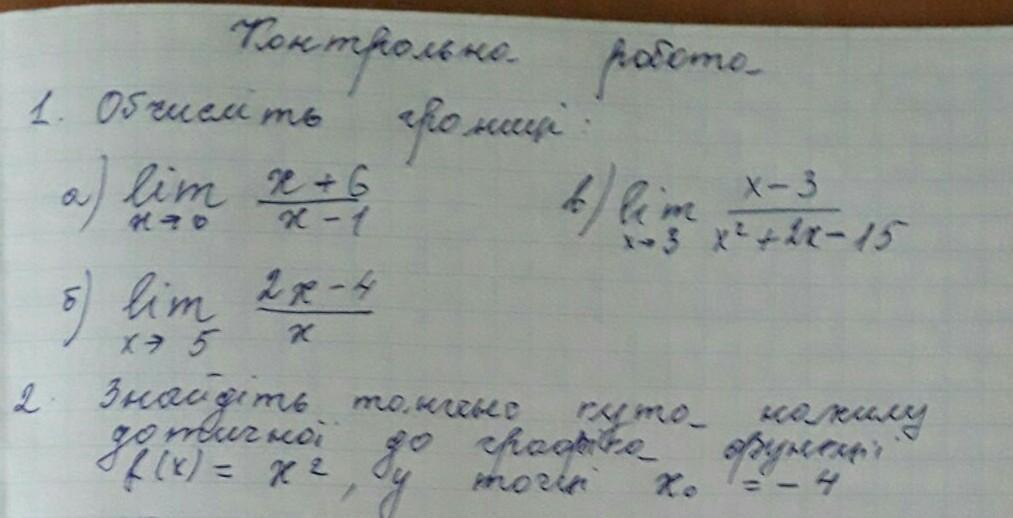 Контрольна робота
1. Обчисліть границі:
а) lim x→0 (x+6)/(x-1)
в) lim x→3 (x-3)/(x²+2x-15)
б) lim x→5 (2x-4)/x
2. Знайдіть тангенс кута нахилу
дотичної до графіка функції
f(x) = x², у точці x₀ = -4